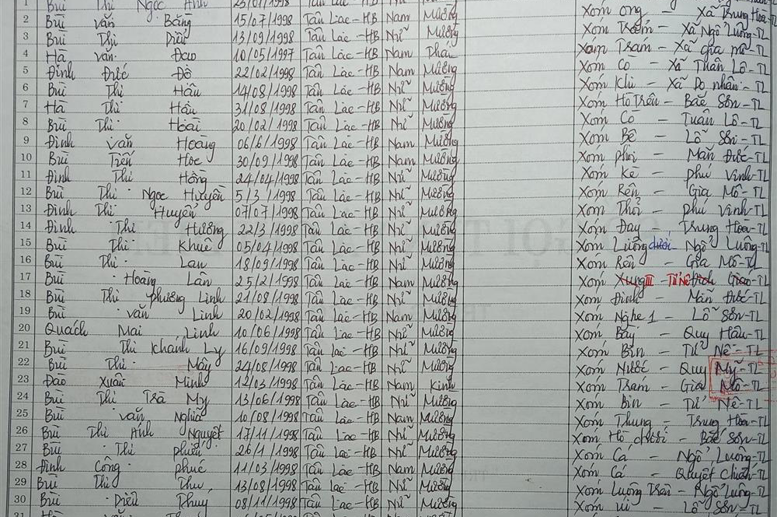 1 Bùi Thị Ngọc Anh 1998 Tân Lạc-HB
2 Bùi Văn Bằng 15/07/1998 Tân Lạc-HB Nam Mường Xóm ong - Xã Trung Hòa-TL
3 Bùi Thị Diệu 13/09/1998 Tân Lạc-HB Nữ Mường Xóm Trăm - Xã Ngổ Luông-TL
4 Hà Văn Đạo 10/05/1997 Tân Lạc-HB Nam Xóm Trạm - Xã
5 Đinh Đức Đô 22/02/1998 Tân Lạc-HB Nam Mường Xóm Cò - Xã Tuân Lộ-TL
6 Bùi Thị Hậu 14/08/1998 Tân Lạc-HB Nữ Mường Xóm Khi - Xã Do nhân-TL
7 Hà Thị Hậu 31/08/1998 Tân Lạc-HB Nữ Mường Xóm Hồ Trên - Bắc Sơn-TL
8 Bùi Thị Hoài 20/02/1998 Tân Lạc-HB Nữ Mường Xóm Cò - Tuân Lộ-TL
9 Đinh Văn Hoàng 06/6/1998 Tân Lạc-HB Nam Mường Xóm Bệ - Lỗ Sơn-TL
10 Bùi Tiến Học 30/09/1998 Tân Lạc-HB Nam Mường Xóm - Mãn Đức-TL
11 Đinh Thị Hồng 24/04/1998 Tân Lạc-HB Nữ Mường Xóm Kè - phú Vinh-TL
12 Bùi Thị Ngọc Huyền 5/3/1998 Tân Lạc-HB Nữ Mường Xóm Rên - Gia Mô-TL
13 Đinh Thị Huyền 07/07/1998 Tân Lạc-HB Nữ Mường Xóm Thỏi - phú Vinh-TL
14 Đinh Thị Hương 22/3/1998 Tân Lạc-HB Nữ Mường Xóm Đay - Trung Hòa-TL
15 Bùi Thị Khuê 05/04/1998 Tân Lạc-HB Nữ Mường Xóm Luông dưới - Ngổ Luông-TL
16 Bùi Thị Lan 18/09/1998 Tân Lạc-HB Nữ Mường Xóm Rên - Gia Mô-TL
17 Bùi Hoàng Lân 25/2/1998 Tân Lạc-HB Nam Mường Xóm
18 Bùi Thị phương Linh 21/08/1998 Tân Lạc-HB Nữ Mường Xóm Định - Mãn Đức-TL
19 Bùi Văn Linh 20/02/1998 Tân Lạc-HB Nam Mường Xóm Nghẹ 1 - Lỗ Sơn-TL
20 Quách Mai Linh 10/06/1998 Tân Lạc-HB Nữ Mường Xóm Bậy - Quy Hậu-TL
21 Bùi Thị Khánh Ly 16/09/1998 Tân Lạc-HB Nữ Mường Xóm Bin - Tử Nê-TL
22 Bùi Thị Mây 24/08/1998 Tân Lạc-HB Nữ Mường Xóm Nước - Quy Mỹ-TL
23 Đào Xuân Minh 12/03/1998 Tân Lạc-HB Nam Kinh Xóm Trạm - Gia Mô-TL
24 Bùi Thị Trà My 13/06/1998 Tân Lạc-HB Nữ Mường Xóm Bin - Tử Nê-TL
25 Bùi Văn Nghĩa 10/08/1998 Tân Lạc-HB Nam Mường Xóm Thung - Trung Hòa-TL
26 Bùi Thị Ánh Nguyệt 17/11/1998 Tân Lạc-HB Nữ Mường Xóm Hồ dưới - Bắc Sơn-TL
27 Bùi Thị 26/1/1998 Tân Lạc-HB Nữ Mường Xóm Cá - Ngổ Luông-TL
28 Đinh Công phúc 11/03/1998 Tân Lạc-HB Nam Mường Xóm Cá - Quyết Chiến-TL
29 Bùi Thị Thu 13/08/1998 Tân Lạc-HB Nữ Mường Xóm Luông Trên - Ngổ Luông-TL
30 Bùi Diệu Thuý 08/11/1998 Tân Lạc-HB Nữ Mường Xóm - Lỗ Sơn-TL